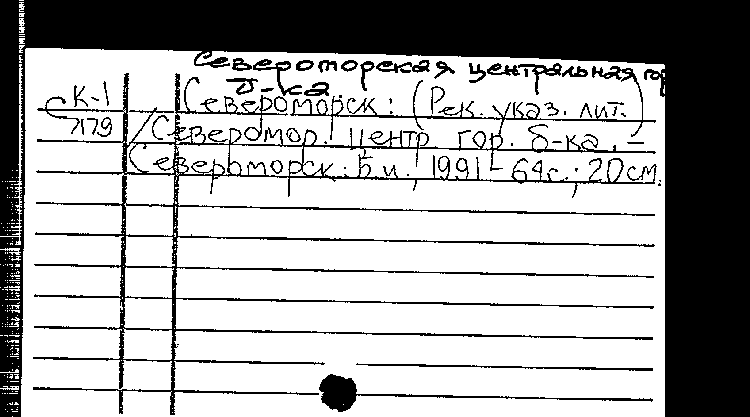 Североморская центральная гор
б-ка
К-1 Североморск: (Рек. указ. лит.)
С 7179 /Северомор. центр. гор. б-ка. –
Североморск: Б.и., 1991 – 64с.; 20см.